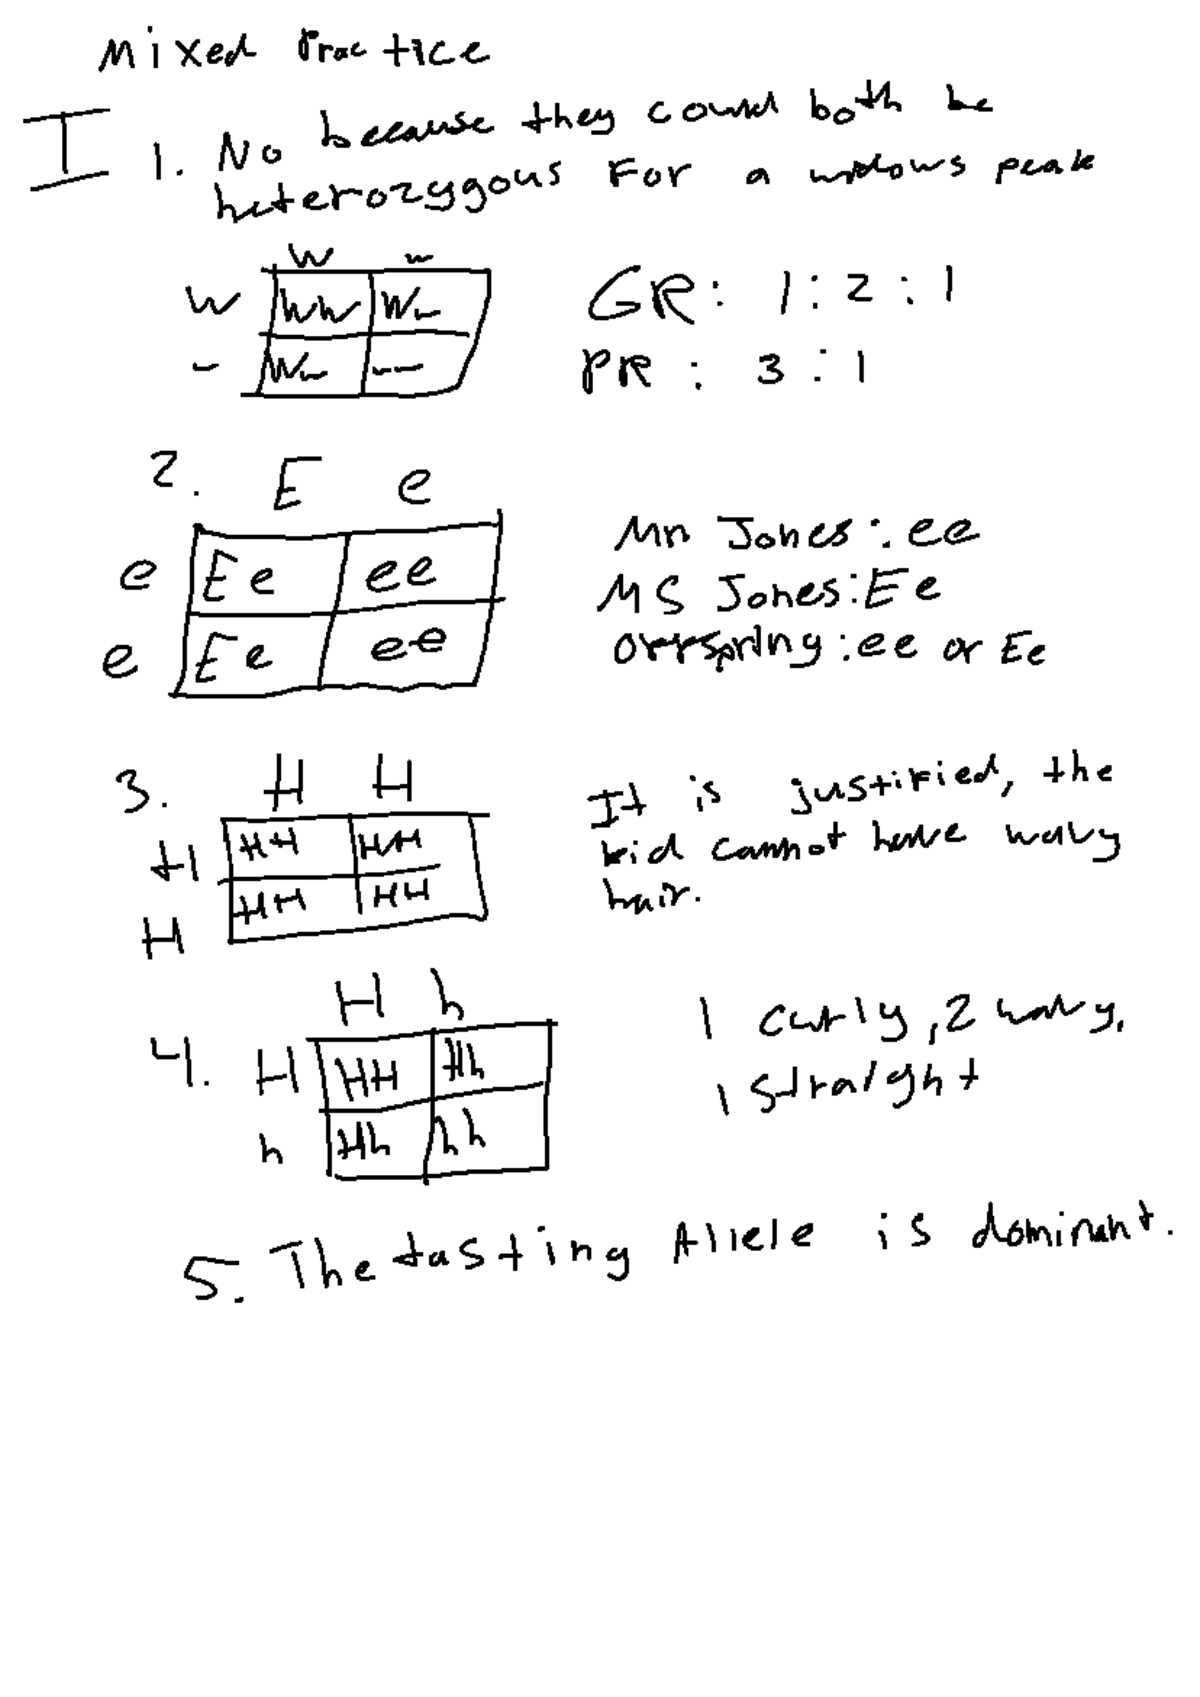 Mixed Practice
I 1. No because they could both be
heterozygous for a widows peak
W w
W WW Ww GR: 1:2:1
w Ww ww PR: 3:1
2. E e
e Ee ee
e Ee ee
Mr Jones: ee
MS Jones: Ee
Offspring: ee or Ee
3. H H
H HH HH
H HH HH
It is justified, the
kid cannot have wavy
hair.
4. H h
H HH Hh
h Hh hh
1 curly, 2 wavy,
1 straight
5. The tasting Allele is dominant.